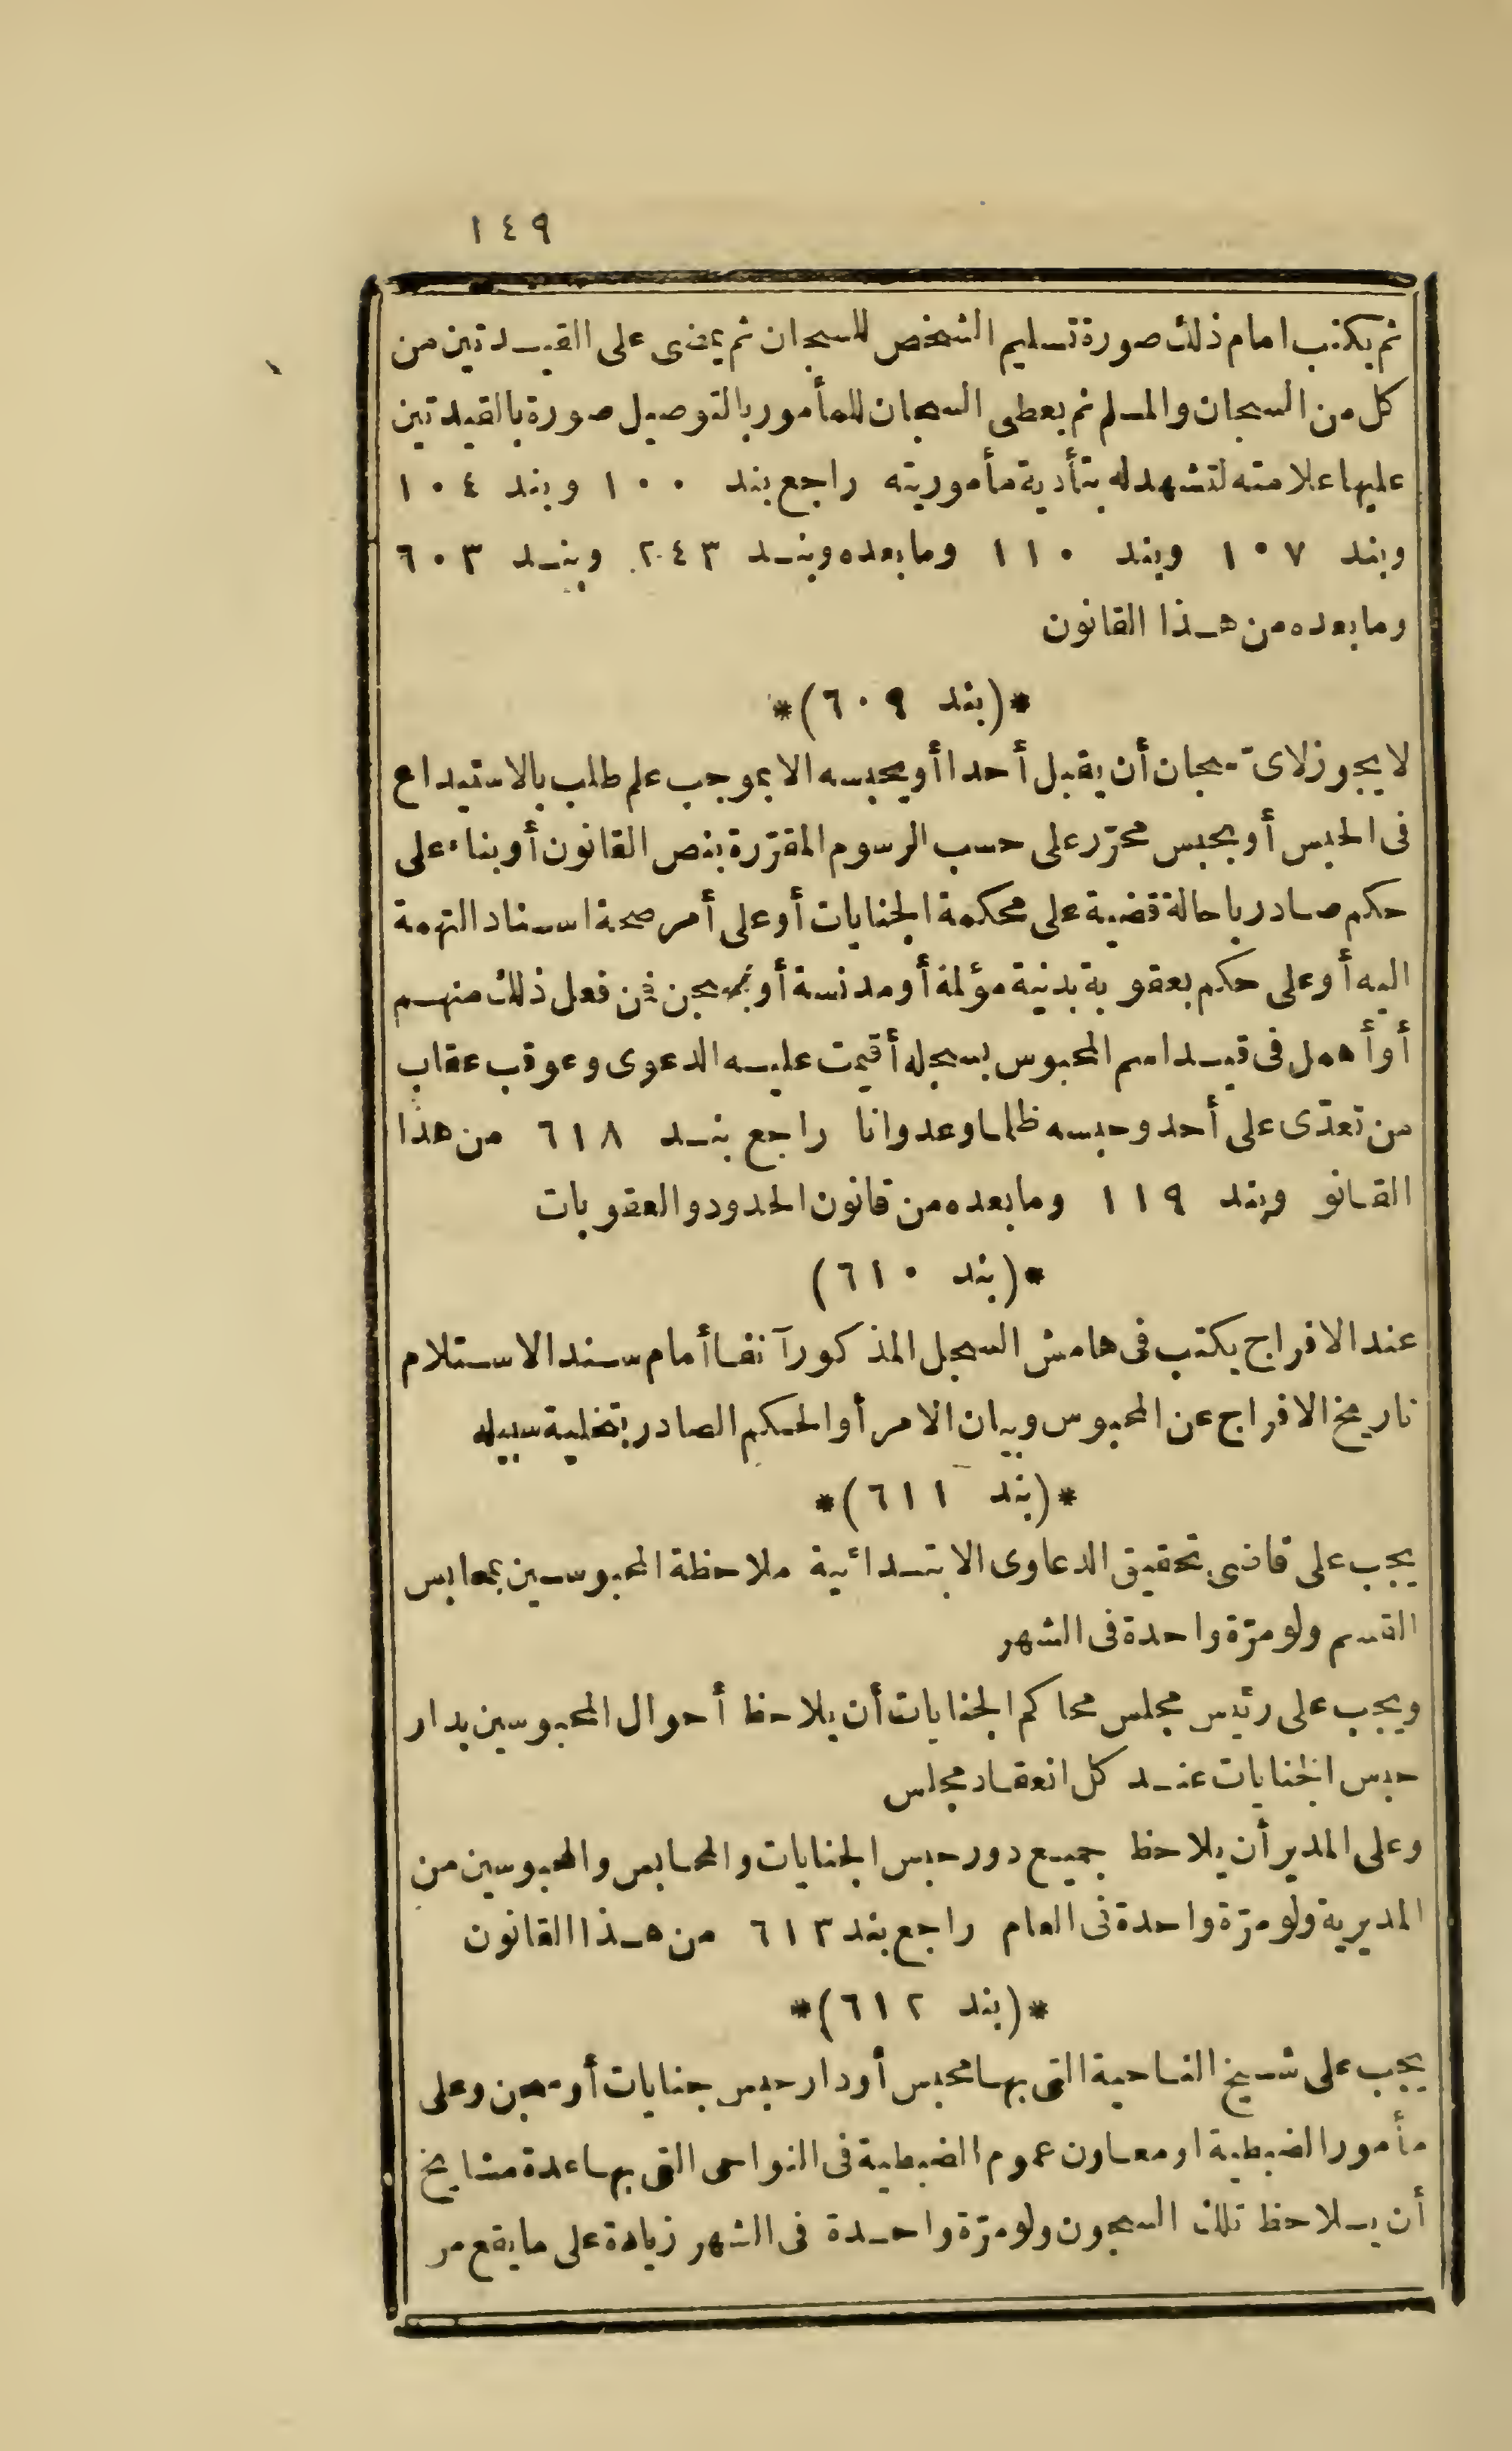 ١٤٩
ثم يكتب امام ذلك صورة تسليم الشخص للسجان ثم يمضى على القيدتين من
كل من السجان والمسلم ثم يعطى السجان للمأمور بالتوصيل صورة بالقيدتين
عليها علامته لتشهد له بتأدية مأموريته راجع بند ١٠٠ وبند ١٠٤
وبند ١٠٧ وبند ١١٠ وما بعده وبند ٢٤٣ وبند ٦٠٣
وما بعده من هذا القانون
*(بند ٦٠٩)*
لا يجوز لاى سجان أن يقبل أحدا أو يحبسه الا بموجب علم طلب بالاستيداع
فى الحبس أو بحبس محرّر على حسب الرسوم المقرّرة بنص القانون أو بناء على
حكم صادر باحالة قضية على محكمة الجنايات أو على أمر صحة اسناد التهمة
اليه أو على حكم بعقوبة بدنية مؤلمة أو مدنسة أو بسجن فمن فعل ذلك منهم
أو أهمل فى قيد اسم المحبوس بسجله أقيمت عليه الدعوى وعوقب عقاب
من تعدّى على أحد وحبسه ظلما وعدوانا راجع بند ٦١٨ من هذا
القانو وبند ١١٩ وما بعده من قانون الحدود والعقوبات
*(بند ٦١٠)
عند الافراج يكتب فى هامش السجل المذكور آنفا أمام سند الاستلام
تاريخ الافراج عن المحبوس وبيان الامر أو الحكم الصادر بتخلية سبيله
*(بند ٦١١)*
يجب على قاضى تحقيق الدعاوى الابتدائية ملاحظة المحبوسين بمحابس
القسم ولو مرّة واحدة فى الشهر
ويجب على رئيس مجلس محاكم الجنايات أن يلاحظ أحوال المحبوسين بدار
حبس الجنايات عند كل انعقاد مجلس
وعلى المدير أن يلاحظ جميع دور حبس الجنايات والمحابس والمحبوسين من
المديرية ولو مرّة واحدة فى العام راجع بند ٦١٣ من هذا القانون
*(بند ٦١٢)*
يجب على شيخ الناحية التى بها محبس أو دار حبس جنايات أو سجن وعلى
مأمور الضبطية او معاون عموم الضبطية فى النواحى التى بها عدة مشايخ
أن يلاحظ تلك السجون ولو مرّة واحدة فى الشهر زيادة على ما يقع مر